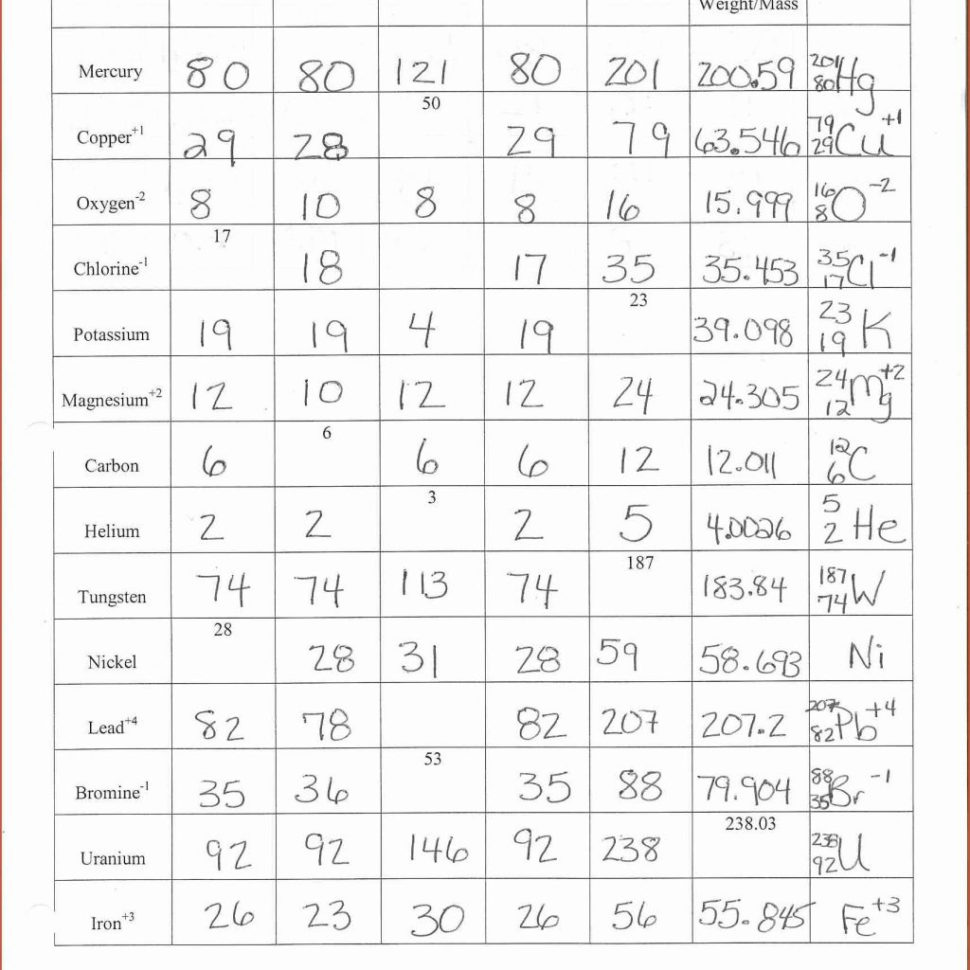 Weight/Mass
Mercury 80 80 121 80 201 200.59 201 80 Hg
Copper+1 29 28 50 29 79 63.546 79 29 Cu +1
Oxygen-2 8 10 8 8 16 15.999 16 8 O -2
Chlorine-1 17 18 17 35 35.453 35 17 Cl -1
Potassium 19 19 4 19 23 39.098 23 19 K
Magnesium+2 12 10 12 12 24 24.305 24 12 Mg +2
Carbon 6 6 6 6 12 12.011 12 6 C
Helium 2 2 3 2 5 4.0026 5 2 He
Tungsten 74 74 113 74 187 183.84 187 74 W
Nickel 28 28 31 28 59 58.693 Ni
Lead+4 82 78 82 207 207.2 207 82 Pb +4
Bromine-1 35 36 53 35 88 79.904 88 35 Br -1
Uranium 92 92 146 92 238 238.03 238 92 U
Iron+3 26 23 30 26 56 55.845 Fe +3